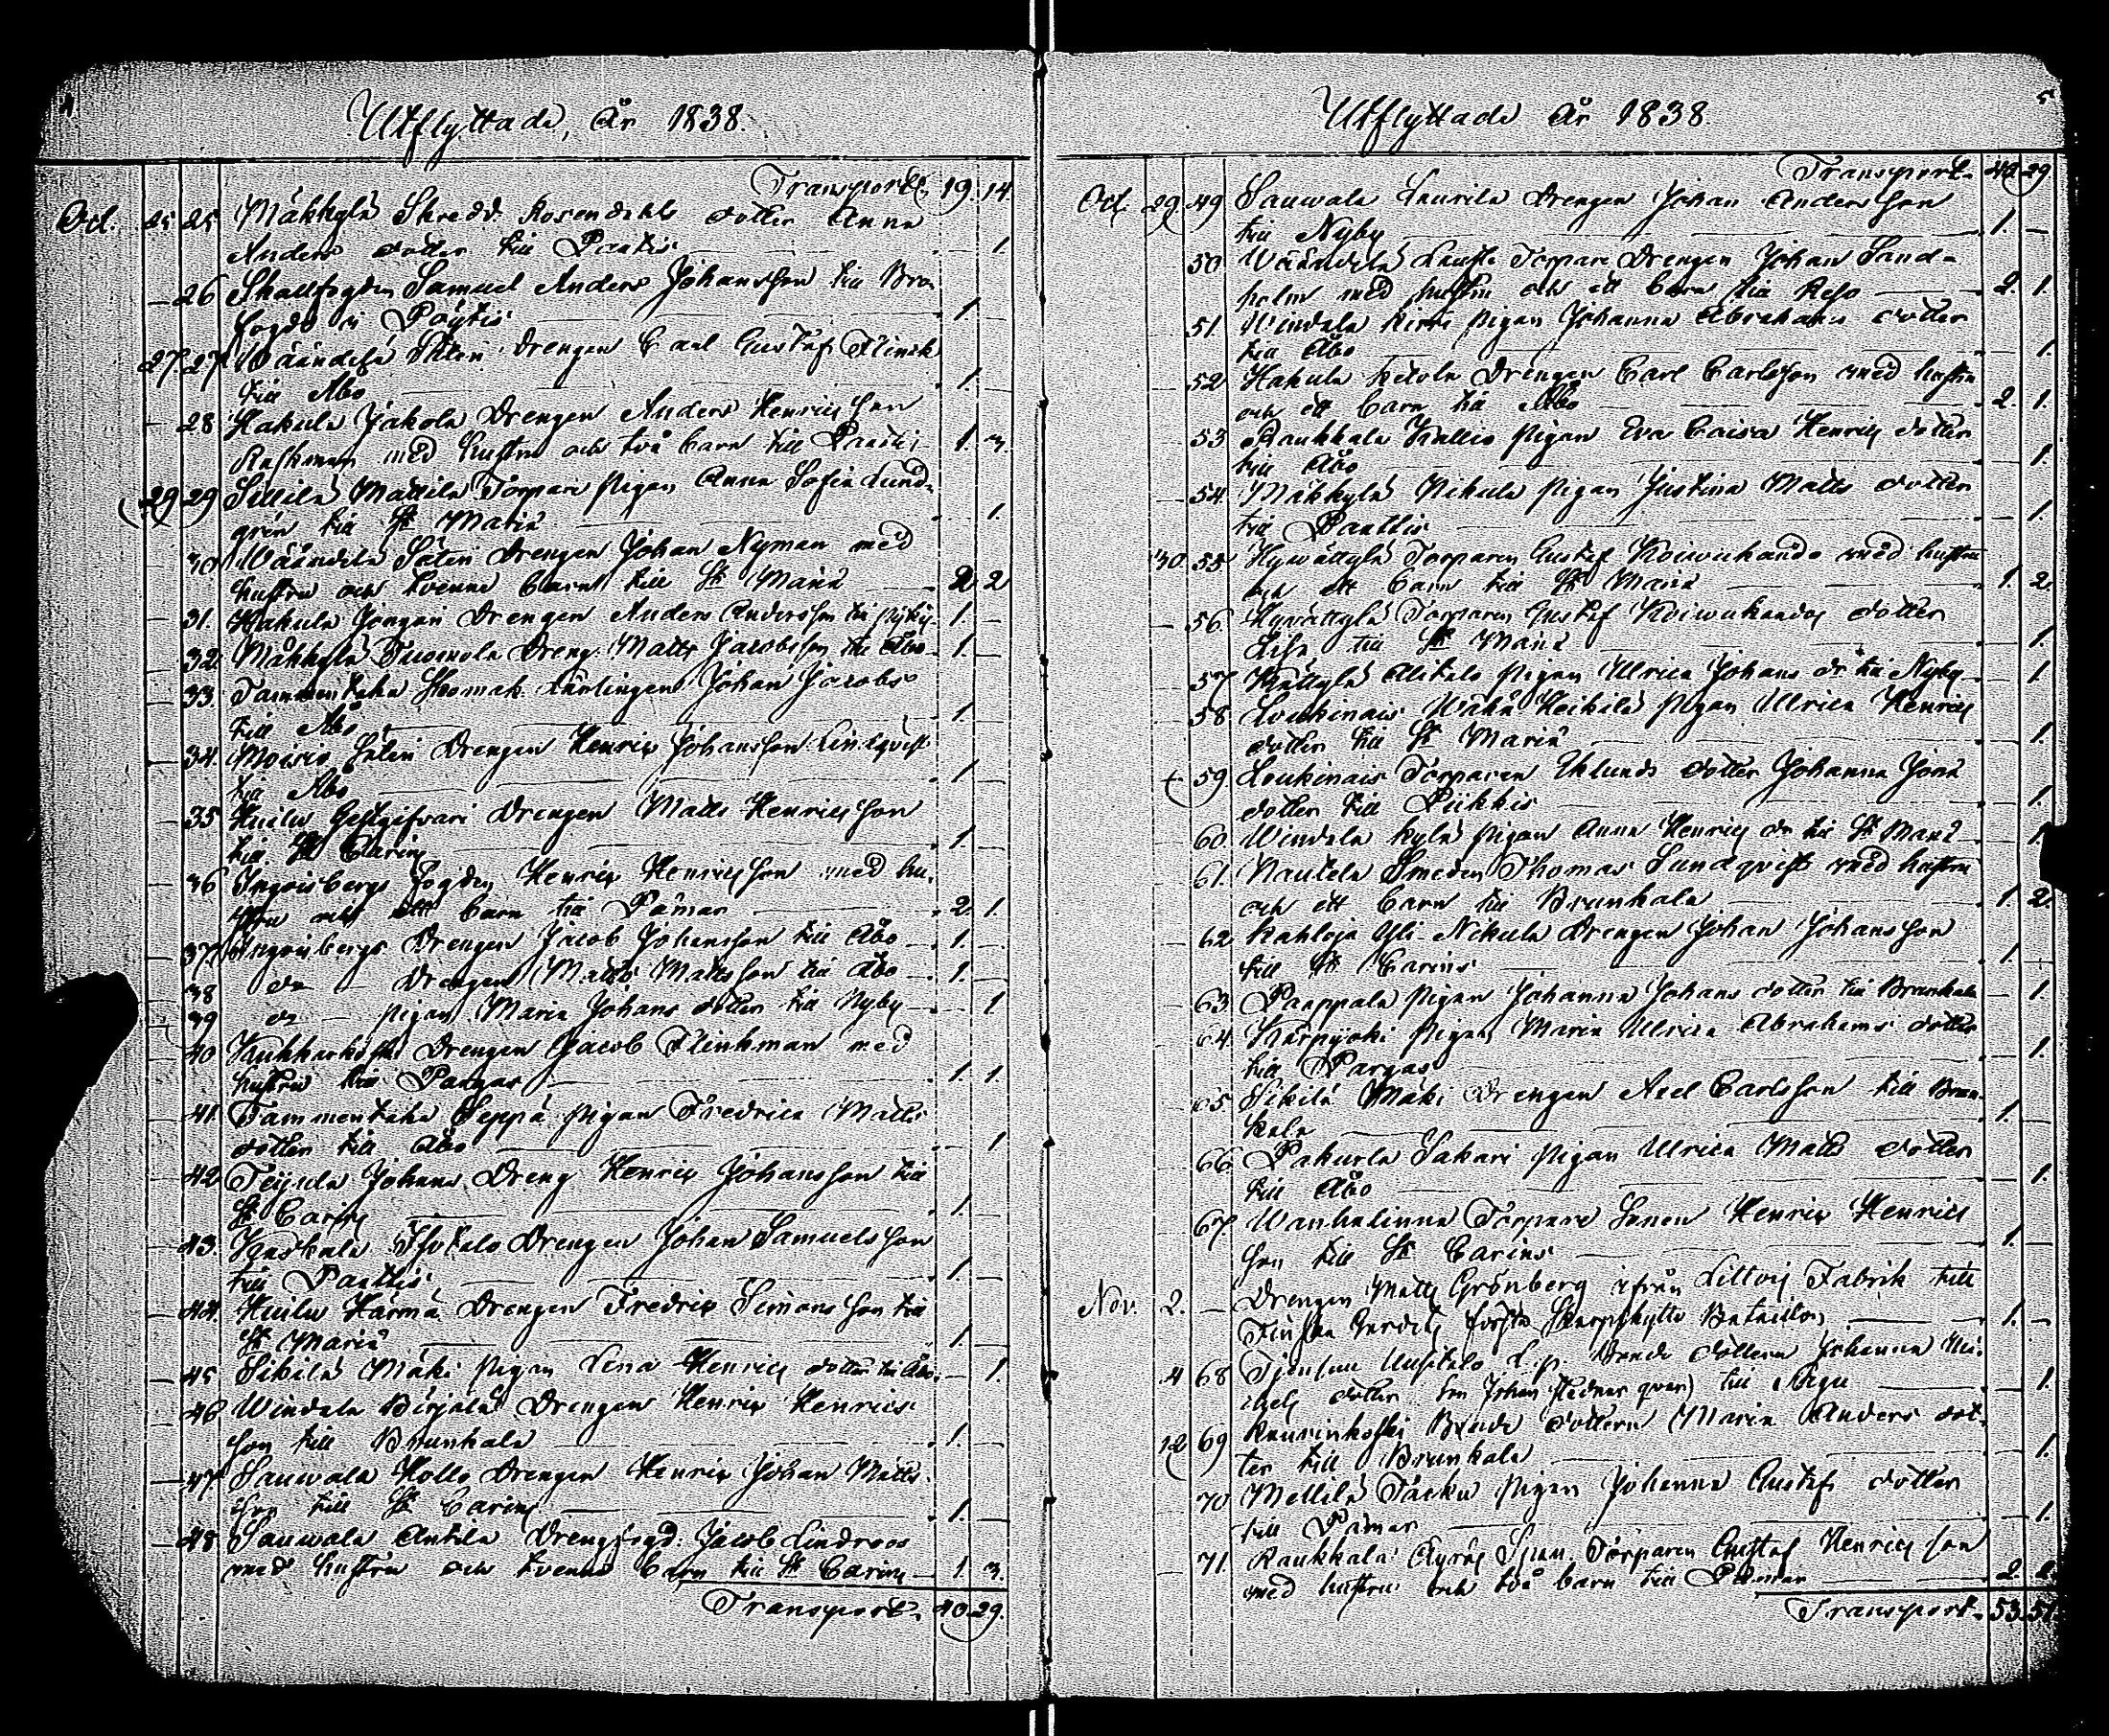 4
Utflyttade, År 1838.
Transport 19. 14.
Oct. 25 25 Mäkkylä Skredd. Rosendahls dotter Anna
Anders dotter till Pantis — 1.
26 Skallfogden Samuel Anders Johansson till Bro
fogde i Pöytis 1 —
27. 27 Wääntelä Säteri Drengen Carl Gustaf Flinck
till Åbo 1. —
28 Hakula Jakola Drengen Anders Henricsson
med hustru och två barn till Pantis 1. 3.
29 29 Sillilä Mattila Torpare Pigan Anna Sofia Lund-
grén till St Mariæ — 1.
30 Wääntelä Säteri Drengen Johan Nyman med
hustru och tvenne barn till St Mariæ 2 2
31. Hakula Drengen Anders Andersson till 1. —
32 Mäkkylä Tuomola Dreng. Matts Jacobsson till Åbo 1. —
33. Tammentaka Lärlingen Johan Jacobs
till Åbo 1. —
34. Moisio Säteri Drengen Henric Johansson Lindqvist
till Åbo 1 —
35 Huilu Gestgifvari Drengen Matts Henricsson
till St Carins 1 —
36 Ingoisbergs fogden Henric Henricsson med hu-
stru och ett barn till Pämar 2. 1.
37. Ingoisbergs Drengen Jacob Johansson till Åbo 1. —
38 do — Drengen Matts Mattsson till Åbo 1. —
39 do — Pigan Maria Johans dotter till Nyby — 1
40 Kukkarkoski Drengen Jacob Flinkman med
hustru till Pargas 1. 1.
41. Tammentaka Seppä Pigan Fredrica Matts
dotter till Åbo — 1
42 Teijula Johans Dreng Henric Johansson till
St Carins 1 —
43. Drengen Johan Samuelsson
till Panttis 1. —
44. Huilu Härmä Drengen Fredric Simonsson till
St Mariæ 1. —
45 Sikilä Mäki Pigan Lena Henrics dotter till Åbo — 1.
46 Windala Birjälä Drengen Henric Henrics
son till Brunkala 1. —
47. Sauwala Kollo Drengen Henric Johan Matts
son till St Carins 1. —
48 Sauwala Antila Drengfogd. Jacob Lindroos
med hustru och tvenne barn till St Carins 1. 3.
Transport. 40. 29.
5
Utflyttade År 1838.
Transport. 40 29
Oct. 29 49 Sauwala Laurila Drengen Johan Andersson
till Nyby 1. —
50 Wääntelä Torpare Drengen Johan Sand-
holm med hustru och ett barn till Reso 2. 1.
51. Windala Pigan Johanna Abrahams dotter
till Åbo — 1.
52 Hakula Ketola Drengen Carl Carlsson med hustru
och ett barn till Åbo 2. 1.
53 Raukkala Kallio Pigan Eva Caisa Henrics dotter
till Åbo — 1.
54 Mäkkylä Nikula Pigan Justina Matts dotter
till Panttis — 1.
30 55 Hywättylä Torparen Gustaf Koiwukando med hustru
och ett barn till St Mariæ 1. 2.
56 Hyvättylä Torparen Gustaf Koiwukandos dotter
Lisa till St Mariæ — 1.
57 Kättylä Alitalo Pigan Ulrica Johans dr till Nyby — 1
58 Loukinais Wähä Heikilä Pigan Ulrica Henrics
dotter till St Mariæ — 1.
59 Loukinais Torparen Eklunds dotter Johanna Jona
dotter till Piikkis — 1.
60 Windala Kylä Pigan Anna Henrics dr till St Mariæ — 1.
61. Nautela Smeden Thomas Sundqvist med hustru
och ett barn till Brunkala 1. 2.
62 Kahloja Yli-Nikula Drengen Johan Johansson
till St Carins 1 —
63. Paappala Pigan Johanna Johans dotter till Brunkala — 1.
64. Kärpijoki Pigan Maria Ulrica Abrahams dotter
till Pargas — 1.
65 Sikilä Mäki Drengen Axel Carlsson till Brun-
kala 1. —
66 Pakurla Sakari Pigan Ulrica Matts dotter
till Åbo — 1.
67. Wanhalinna Torpare Sonen Henric Henrics
son till St Carins 1. —
Nov. 2. — Drengen Matts Grönberg ifrån Littois Fabrik till
Finska Gardets första Skarpskytte Bataillon 1. —
4 68 Uusitalo Bonde dottern Johanna Mi-
chels dotter till Nagu — 1.
12 69 Raurinkoski Bonde dottern Maria Anders dot-
ter till Brunkala — 1.
70 Mellilä Pigan Johanna Gustafs dotter
till Pämar — 1.
71. Raukkala Äyräs Torparen Gustaf Henricsson
med hustru och två barn till Pämar 2. 2.
Transport. 53. 51.